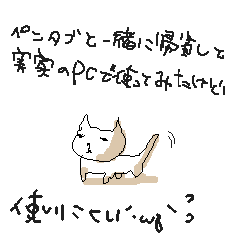 ペンタブと一緒に帰省して
実家のPCで使ってみたけど
使いにくい…wg`